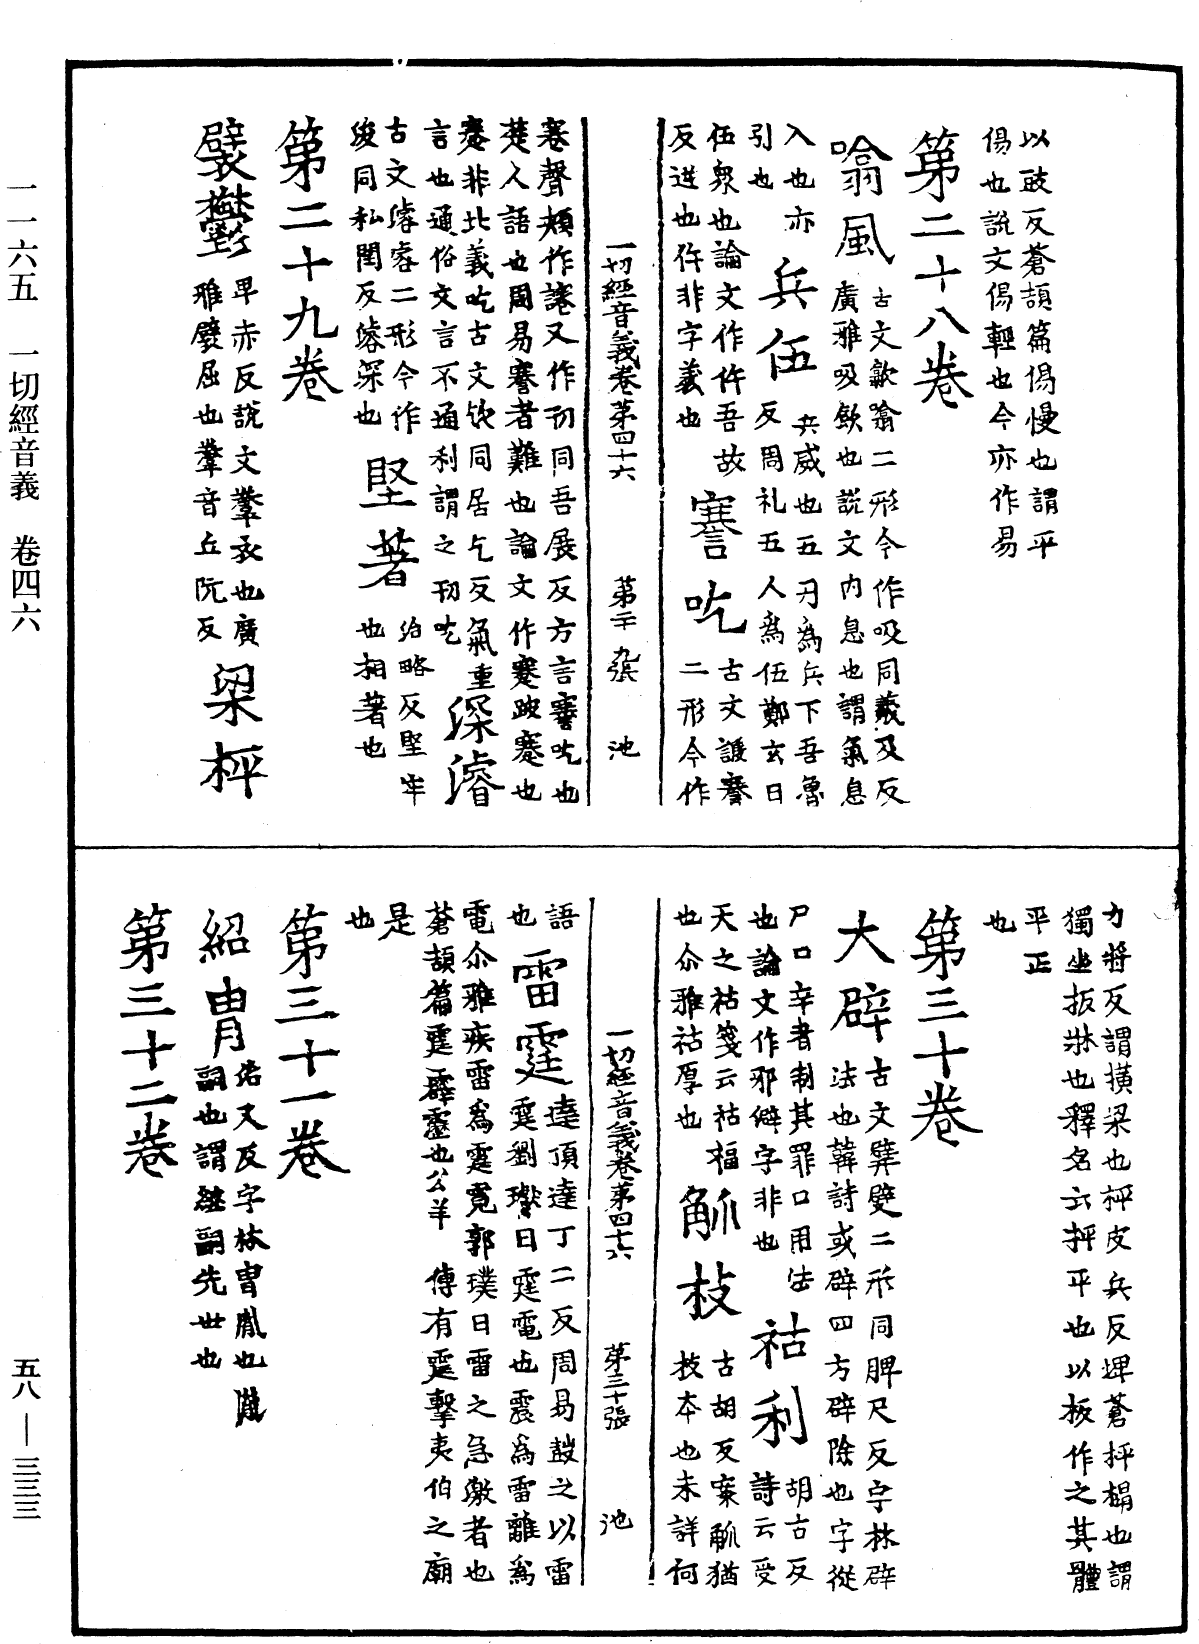 一一六五　一切經音義　卷四六
五八—三三三
以豉反蒼頡篇傷慢也謂平
傷也說文傷輕也今亦作易
第二十八卷
噏風
古文歙噏二形今作吸同羲及反
廣雅吸飲也說文內息也謂氣息
入也亦
引也
兵伍
兵威也五刃為兵下吾魯
反周礼五人為伍鄭玄曰
伍衆也論文作仵吾故
反迕也仵非字義也
謇吃
古文謢謇
二形今作
一切經音義卷第四十六　第二十九張　池
蹇聲類作讓又作刃同吾展反方言謇吃也
楚人語也周易謇者難也論文作蹇跛蹇也
蹇非此義吃古文欽同居乞反氣重
言也通俗文言不通利謂之刃吃
深濬
古文濬睿二形今作
浚同私閏反濬深也
堅著
治略反堅牢
也相著也
第二十九卷
襞鬱
早赤反說文韏衣也廣
雅襞屈也韏音丘阮反
梁枰
力將反謂橫梁也枰皮兵反埤蒼枰榻也謂
獨坐扳牀也釋名云枰平也以板作之其體
平正
也
第三十卷
大辟
古文𨐨𨐢二形同脾尺反字林辟
法也韓詩或辟四方辟除也字從
尸口辛者制其罪口用法
也論文作邪僻字非也
祜利
胡古反
詩云受
天之祜箋云祜福
也尒雅祜厚也
觚枝
古胡反案觚猶
枝本也未詳何
一切經音義卷第四十六　第三十張　池
語
也
雷霆
達頂達丁二反周易鼓之以雷
霆劉瓛曰霆電也震為雷離為
電尒雅疾雷為霆霓郭璞曰雷之急激者也
蒼頡篇霆霹靂也公羊傳有霆擊夷伯之廟
是
也
第三十一卷
紹冑
治又反字林冑胤也
嗣也謂繼嗣先世也
第三十二卷